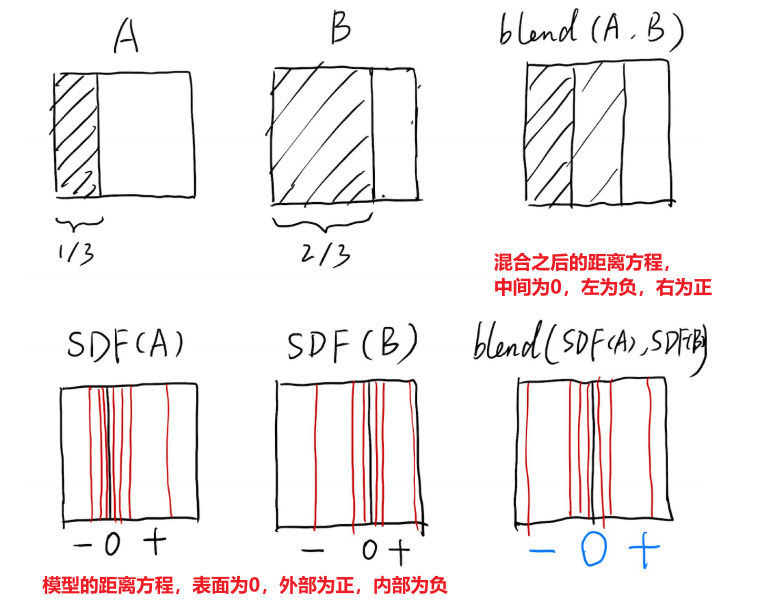 A
B
blend(A,B)
1/3
2/3
混合之后的距离方程,
中间为0,左为负,右为正
SDF(A)
SDF(B)
blend(SDF(A),SDF(B))
- 0 +
- 0 +
- 0 +
模型的距离方程,表面为0,外部为正,内部为负